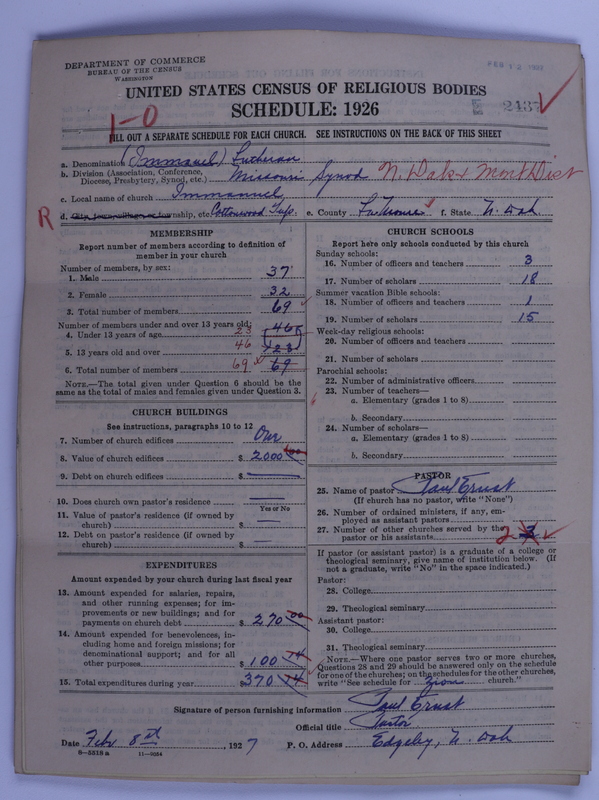 DEPARTMENT OF COMMERCE
BUREAU OF THE CENSUS
WASHINGTON
UNITED STATES CENSUS OF RELIGIOUS BODIES
SCHEDULE: 1926
2437
1-0
FILL OUT A SEPARATE SCHEDULE FOR EACH CHURCH. SEE INSTRUCTIONS ON THE BACK OF THIS SHEET
a. Denomination (Immanuel) Lutheran
b. Division (Association, Conference, Diocese, Presbytery, Synod, etc.) Missouri Synod N. Dak & Mont Dist
c. Local name of church Immanuel
R d. City, town, village, or township, etc. Cottonwood Twp. e. County La Moure f. State N. Dak.
MEMBERSHIP
Report number of members according to definition of
member in your church
Number of members, by sex:
1. Male 37
2. Female 32
3. Total number of members 69
Number of members under and over 13 years old:
4. Under 13 years of age 23 46
5. 13 years old and over 46 23
6. Total number of members 69 69
NOTE.—The total given under Question 6 should be the
same as the total of males and females given under Question 3.
CHURCH BUILDINGS
See instructions, paragraphs 10 to 12
7. Number of church edifices One
8. Value of church edifices $ 2000 00
9. Debt on church edifices $
10. Does church own pastor's residence
Yes or No
11. Value of pastor's residence (if owned by
church) $
12. Debt on pastor's residence (if owned by
church) $
EXPENDITURES
Amount expended by your church during last fiscal year
13. Amount expended for salaries, repairs,
and other running expenses; for im-
provements or new buildings; and for
payments on church debt $ 270 00
14. Amount expended for benevolences, in-
cluding home and foreign missions; for
denominational support; and for all
other purposes $ 100 74
15. Total expenditures during year $ 370 74
CHURCH SCHOOLS
Report here only schools conducted by this church
Sunday schools:
16. Number of officers and teachers 3
17. Number of scholars 18
Summer vacation Bible schools:
18. Number of officers and teachers 1
19. Number of scholars 15
Week-day religious schools:
20. Number of officers and teachers
21. Number of scholars
Parochial schools:
22. Number of administrative officers
23. Number of teachers—
a. Elementary (grades 1 to 8)
b. Secondary
24. Number of scholars—
a. Elementary (grades 1 to 8)
b. Secondary
PASTOR
25. Name of pastor Paul Ernst
(If church has no pastor, write "None")
26. Number of ordained ministers, if any, em-
ployed as assistant pastors
27. Number of other churches served by the
pastor or his assistants 2 3
If pastor (or assistant pastor) is a graduate of a college or
theological seminary, give name of institution below. (If
not a graduate, write "No" in the space indicated.)
Pastor:
28. College
29. Theological seminary
Assistant pastor:
30. College
31. Theological seminary
NOTE.—Where one pastor serves two or more churches,
Questions 28 and 29 should be answered only on the schedule
for one of the churches; on the schedules for the other churches,
write "See schedule for Zion church."
Signature of person furnishing information Paul Ernst
Official title Pastor
Date Feb 8th, 1927 P. O. Address Edgeley, N. Dak
8-5318 a 11-9054